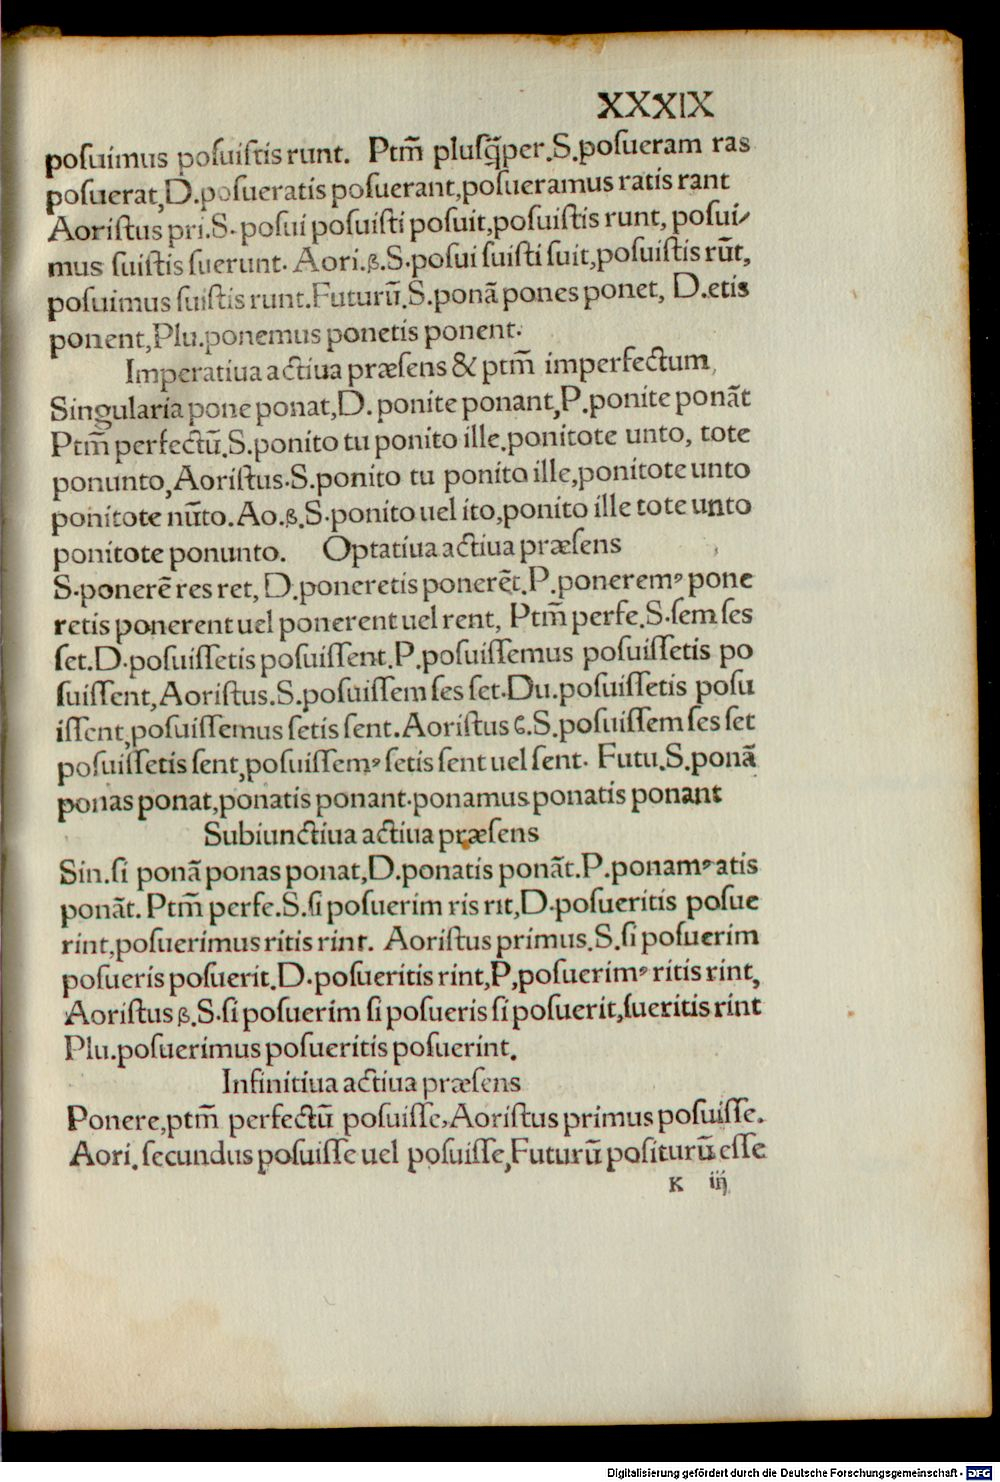 XXXIX
posuimus posuistis runt. Ptm̃ plusq̃per.S.posueram ras
posuerat,D.posueratis posuerant,posueramus ratis rant
Aoristus pri.S.posui posuisti posuit,posuistis runt, posui/
mus suistis suerunt. Aori.β.S.posui suisti suit,posuistis rũt,
posuimus suistis runt.Futurũ.S.ponã pones ponet, D.etis
ponent,Plu.ponemus ponetis ponent.
Imperatiua actiua præsens & ptm̃ imperfectum,
Singularia pone ponat,D. ponite ponant,P.ponite ponãt
Ptm̃ perfectũ.S.ponito tu ponito ille.ponitote unto, tote
ponunto,Aoristus.S.ponito tu ponito ille,ponitote unto
ponitote nũto.Ao.β.S.ponito uel ito,ponito ille tote unto
ponitote ponunto. Optatiua actiua præsens
S.ponerẽ res ret, D.poneretis ponerẽt.P.poneremꝰ pone
retis ponerent uel ponerent uel rent, Ptm̃ perfe.S.sem ses
set.D.posuissetis posuissent.P.posuissemus posuissetis po
suissent,Aoristus.S.posuissem ses set.Du.posuissetis posu
issent,posuissemus setis sent.Aoristus ϐ.S.posuissem ses set
posuissetis sent,posuissemꝰ setis sent uel sent. Futu.S.ponã
ponas ponat,ponatis ponant.ponamus ponatis ponant
Subiunctiua actiua præsens
Sin.si ponã ponas ponat,D.ponatis ponãt.P.ponamꝰ atis
ponãt. Ptm̃ perfe.S.si posuerim ris rit,D.posueritis posue
rint,posuerimus ritis rint. Aoristus primus.S.si posuerim
posueris posuerit.D.posueritis rint,P,posuerimꝰ ritis rint,
Aoristus β.S.si posuerim si posueris si posuerit,sueritis rint
Plu.posuerimus posueritis posuerint.
Infinitiua actiua præsens
Ponere,ptm̃ perfectũ posuisse,Aoristus primus posuisse.
Aori.secundus posuisse uel posuisse,Futurũ positurũ esse
K iij
Digitalisierung gefördert durch die Deutsche Forschungsgemeinschaft - DFG